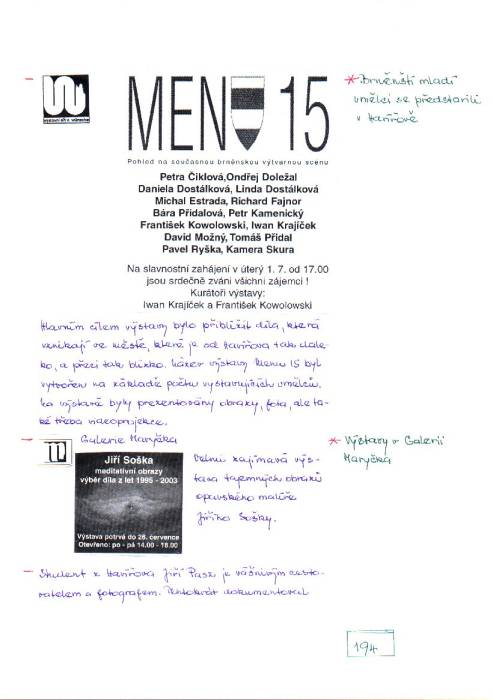 MENU 15
Pohled na současnou brněnskou výtvarnou scénu
Petra Čiklová,Ondřej Doležal
Daniela Dostálková, Linda Dostálková
Michal Estrada, Richard Fajnor
Bára Přidalová, Petr Kamenický
František Kowolowski, Iwan Krajíček
David Možný, Tomáš Přidal
Pavel Ryška, Kamera Skura
Na slavnostní zahájení v úterý 1. 7. od 17.00
jsou srdečně zváni všichni zájemci !
Kurátoři výstavy:
Iwan Krajíček a František Kowolowski
* Brněnští mladí
umělci se představili
v Havířově
Hlavním cílem výstavy bylo přiblížit díla, která
vznikají ve městě, které je od Havířova tak dale-
ko, a přeci tak blízko. Název výstavy Menu 15 byl
vytvořen na základě počtu vystavujících umělců.
Na výstavě byly prezentovány obrazy, fota, ale ta-
ké třeba videoprojekce.
Galerie Maryčka
* Výstavy v Galerii
Maryčka
Jiří Soška
meditativní obrazy
výběr díla z let 1995 - 2003
Výstava potrvá do 26. července
Otevřeno: po - pá 14.00 - 18.00
Velmi zajímavá výs-
tava tajemných obrazů
opavského malíře
Jiřího Sošky.
Student z Havířova Jiří Pasz je vášnivým cesto-
vatelem a fotografem. Tentokrát dokumentoval
194